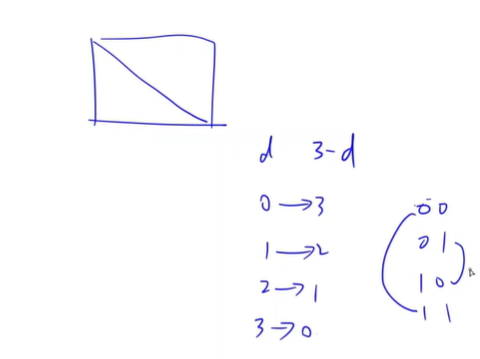 d 3-d
0 → 3
1 → 2
2 → 1
3 → 0
0 0
0 1
1 0
1 1